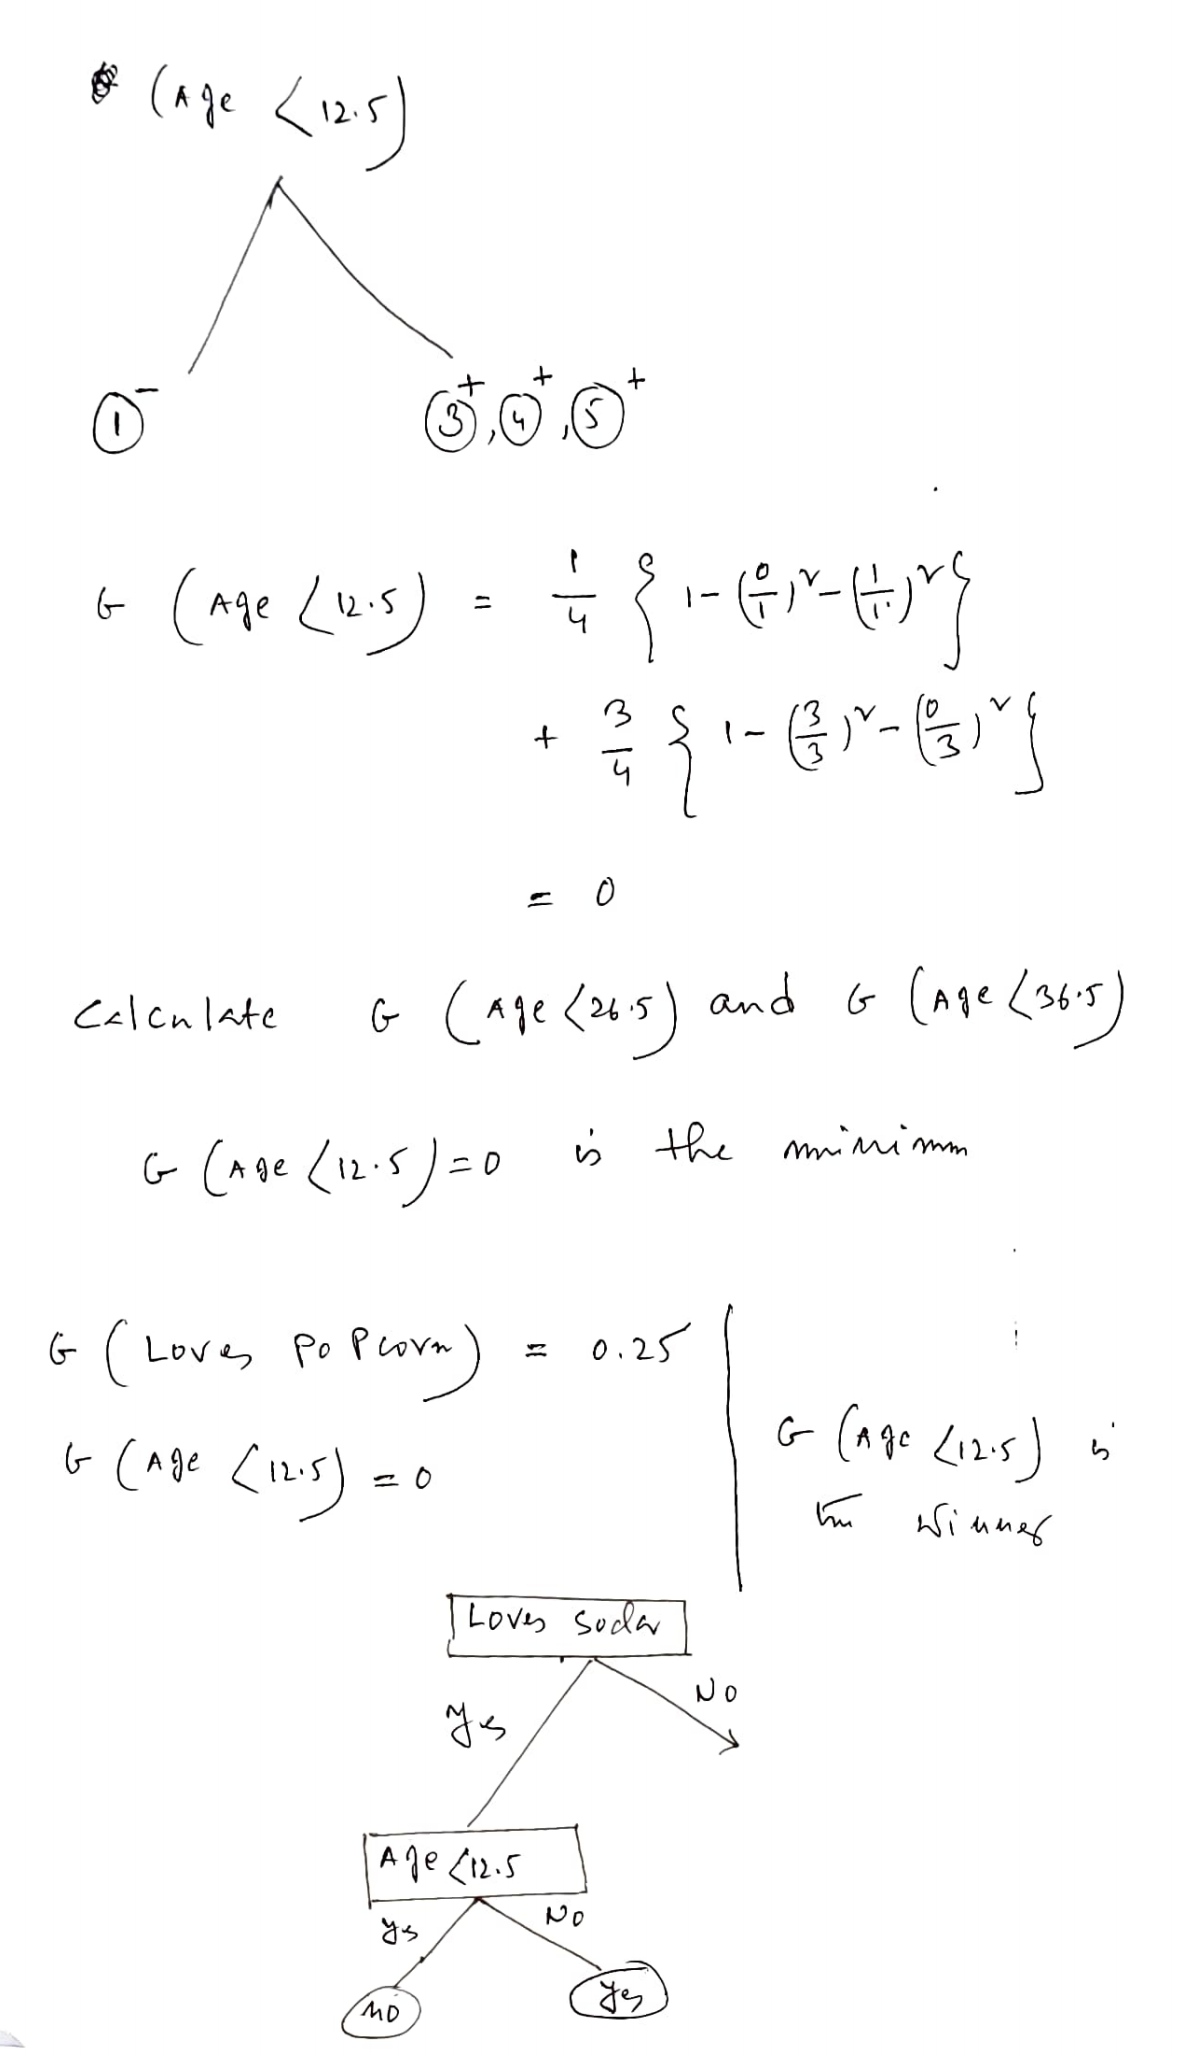 (Age < 12.5)
①⁻ ③⁺, ④⁺, ⑤⁺
G (Age < 12.5) = 1/4 { 1 - (0/1)² - (1/1)² }
+ 3/4 { 1 - (3/3)² - (0/3)² }
= 0
Calculate G (Age < 26.5) and G (Age < 36.5)
G (Age < 12.5) = 0 is the minimum
G (Loves Popcorn) = 0.25
G (Age < 12.5) = 0
G (Age < 12.5) is
the winner
Loves soda
Yes No
Age < 12.5
Yes No
No Yes